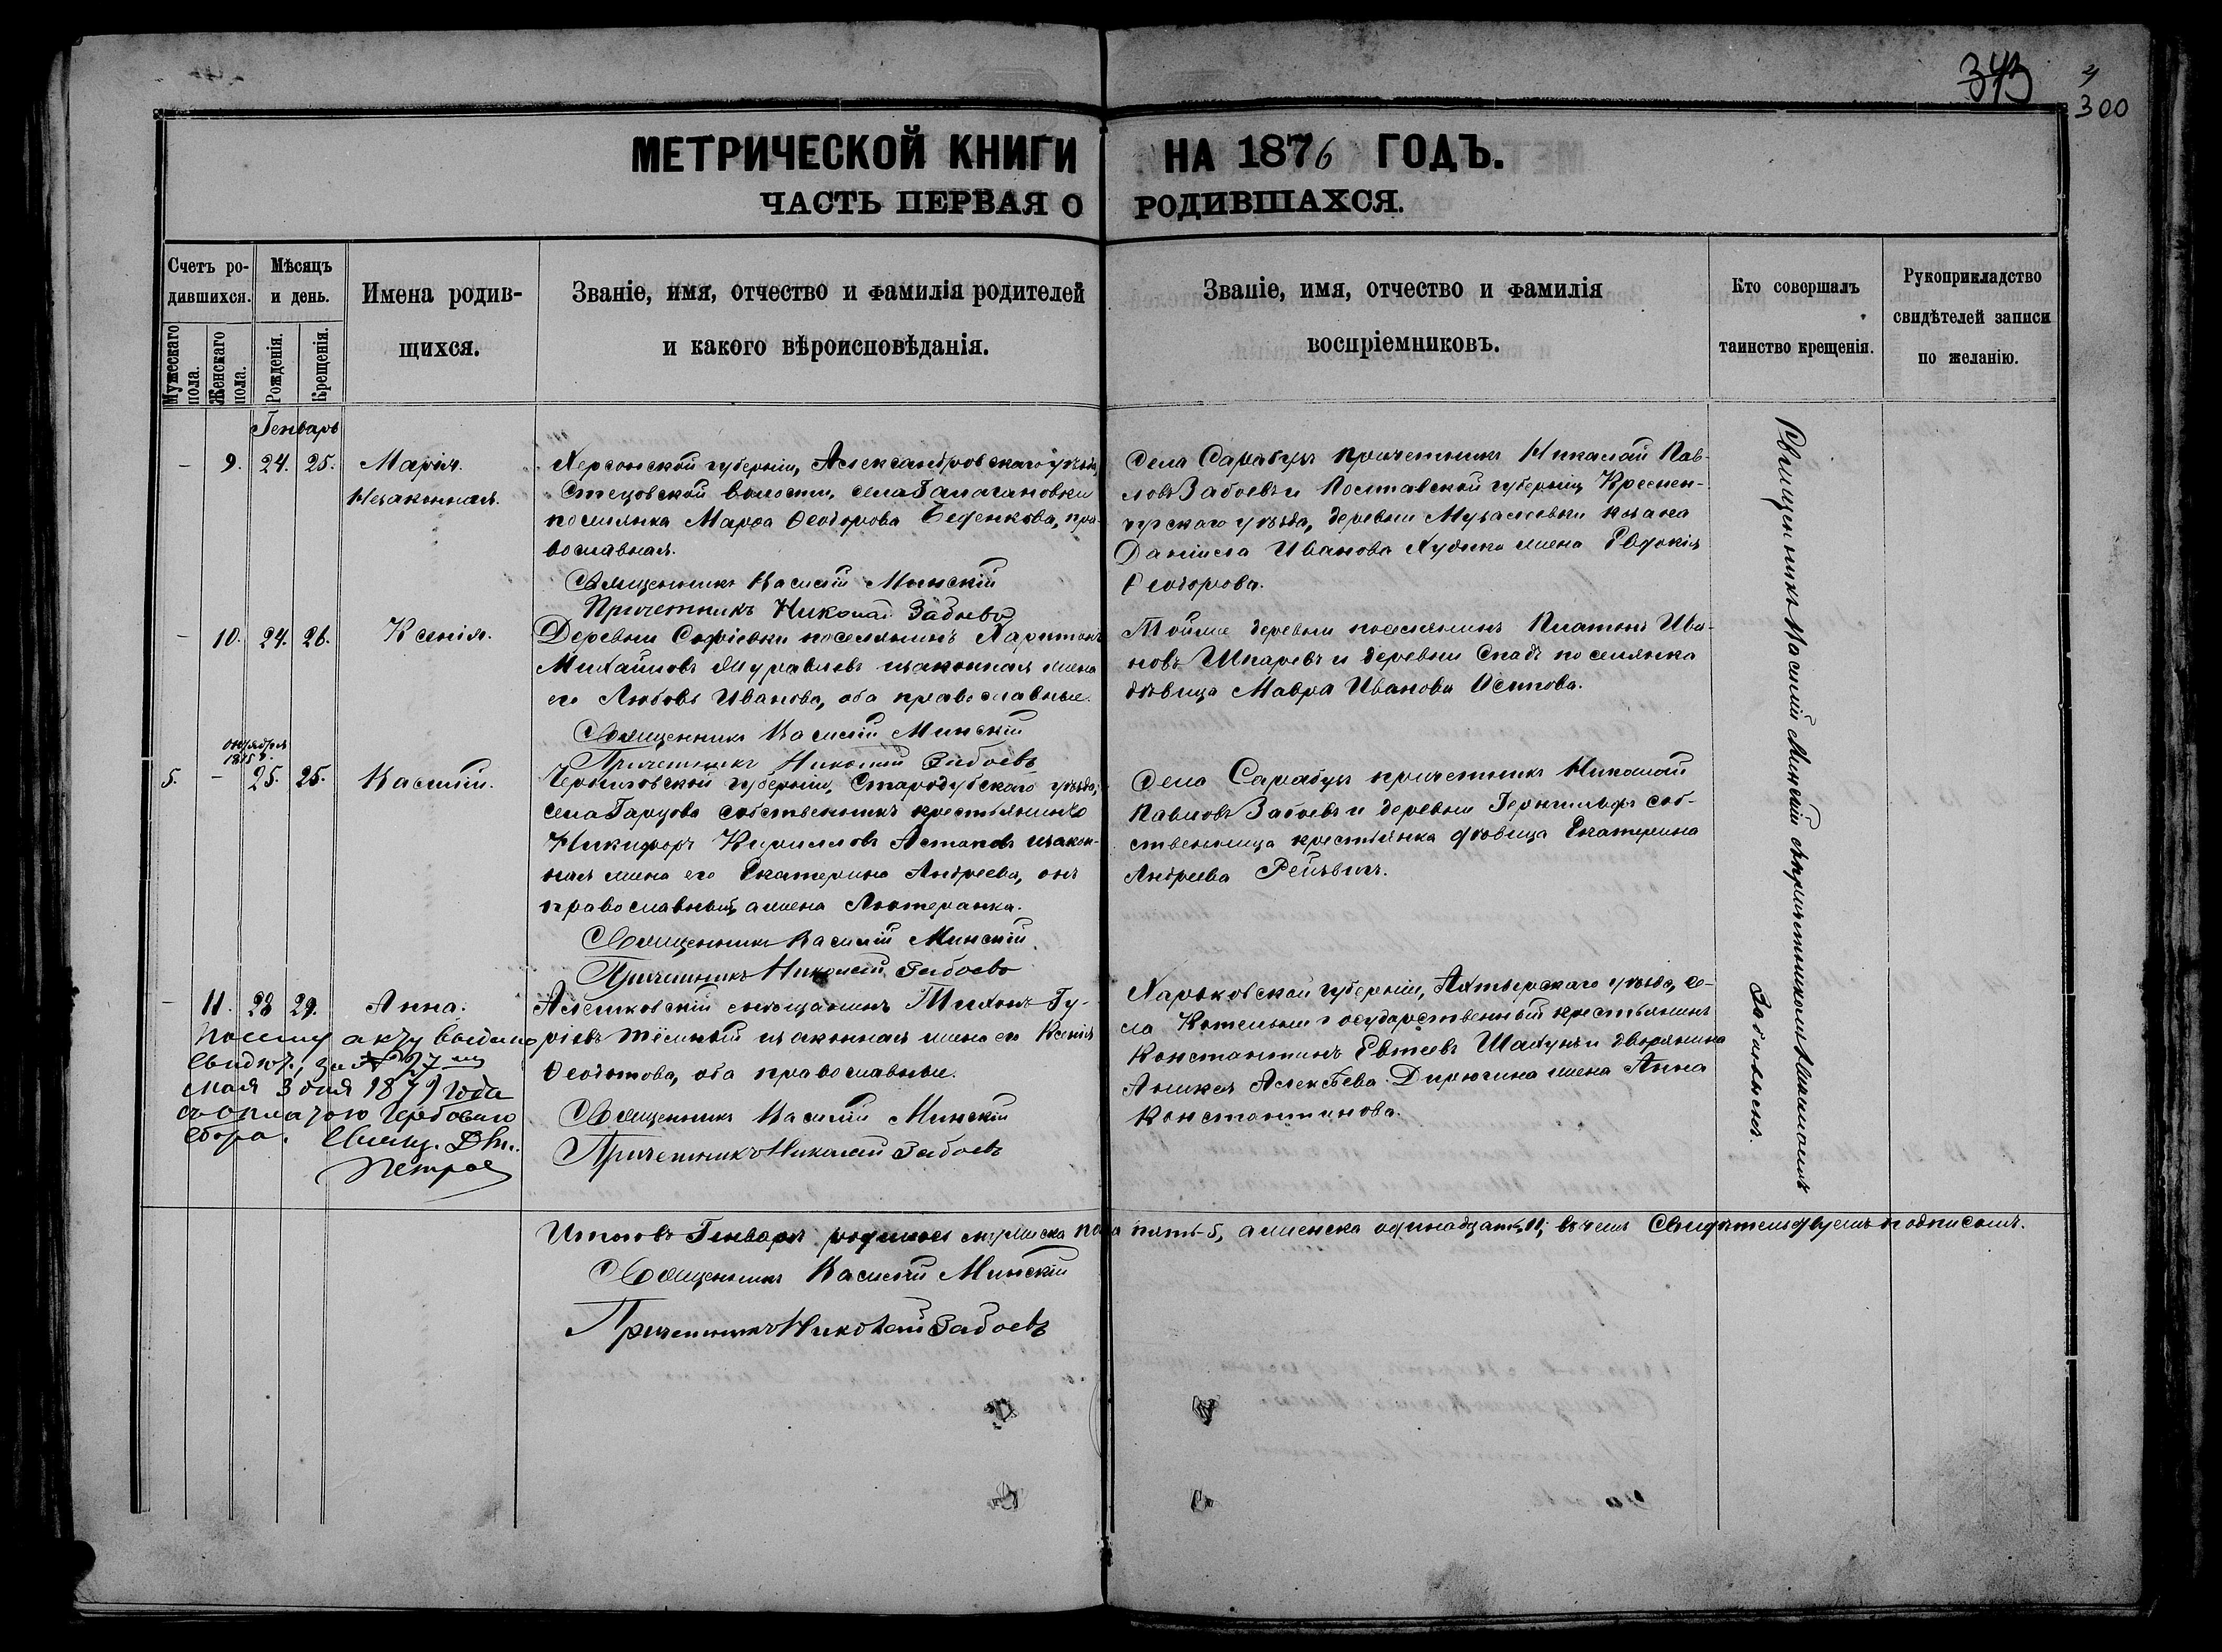 343
4
300
МЕТРИЧЕСКОЙ КНИГИ НА 1876 ГОДЪ.
ЧАСТЬ ПЕРВАЯ О РОДИВШАХСЯ.
Счетъ ро-
дившихся.
Мужескаго пола.
Женскаго пола.
Мѣсяцъ
и день.
Рожденія.
Крещенія.
Имена родив-
щихся.
Званіе, имя, отчество и фамилія родителей
и какого вѣроисповѣданія.
Званіе, имя, отчество и фамилія
воспріемниковъ.
Кто совершалъ
таинство крещенія.
Рукоприкладство
свидѣтелей записи
по желанію.
Генварь
– 9. 24. 25. Марія.
Незаконная.
Херсонской губерніи, Александровскаго уѣзда,
Стецовской волости, села Галагановки
поселянка Марѳа Ѳеодорова Беденкова, пра-
вославная.
Священникъ Василій Минскій
Причетникъ Николай Забоевъ
Села Сарабузъ причетникъ Николай Пав-
ловъ Забоевъ и Полтавской губерніи Кремен-
чугскаго уѣзда, деревни козака
Даніила Иванова жена Евдокія
Ѳеодорова.
– 10. 24. 26. Ксенія.
Деревни Софіевки поселянинъ Харитонъ
Михайловъ Журавлевъ изаконная жена
его Любовь Иванова, оба православные.
Священникъ Василій Минскій
Причетникъ Николай Забоевъ
Тойже деревни поселянинъ Платонъ Ива-
новъ Шкаревъ и деревни Спатъ поселянка
дѣвица Мавра Иванова Осипова.
октября
1875 г.
5. – 25. 25. Василій.
Черниговской губерніи, Стародубскаго уѣзда,
села Гарцова собственникъ крестьянинъ
Никифоръ Кирилловъ Астаповъ изакон-
ная жена его Екатерина Андреева, онъ
православный, а жена Лютеранка.
Священникъ Василій Минскій.
Причетникъ Николай Забоевъ
Села Сарабузъ причетникъ Николай
Павловъ Забоевъ и деревни соб-
ственница крестьянка дѣвица Екатерина
Андреева
– 11. 28 29. Анна.
Алешковскій мѣщанинъ Тихонъ Гу-
ріевъ изаконная жена его Ксенія
Ѳеодотова, оба православные.
Священникъ Василій Минскій
Причетникъ Николай Забоевъ
Харьковской губерніи, Ахтырскаго уѣзда, се-
ла Котельвы государственный крестьянинъ
Константинъ Евтеевъ и дворянина
Аникея Алексѣева жена Анна
Константинова.
По сему акту выдано
свидѣт. за № 27
мая 3 дня 1879 года
съ оплатою гербоваго
сбора. Свящ. Дм.
Петров
Священникъ Василій Минскій съ причетникомъ Николаемъ
Забоевымъ.
Итого въ Генварѣ родилось мужеска пола пять-5, а женска одинадцать, 11; въ чемъ Свидѣтельствуемъ подписомъ.
Священникъ Василій Минскій
Причетникъ Николай Забоевъ